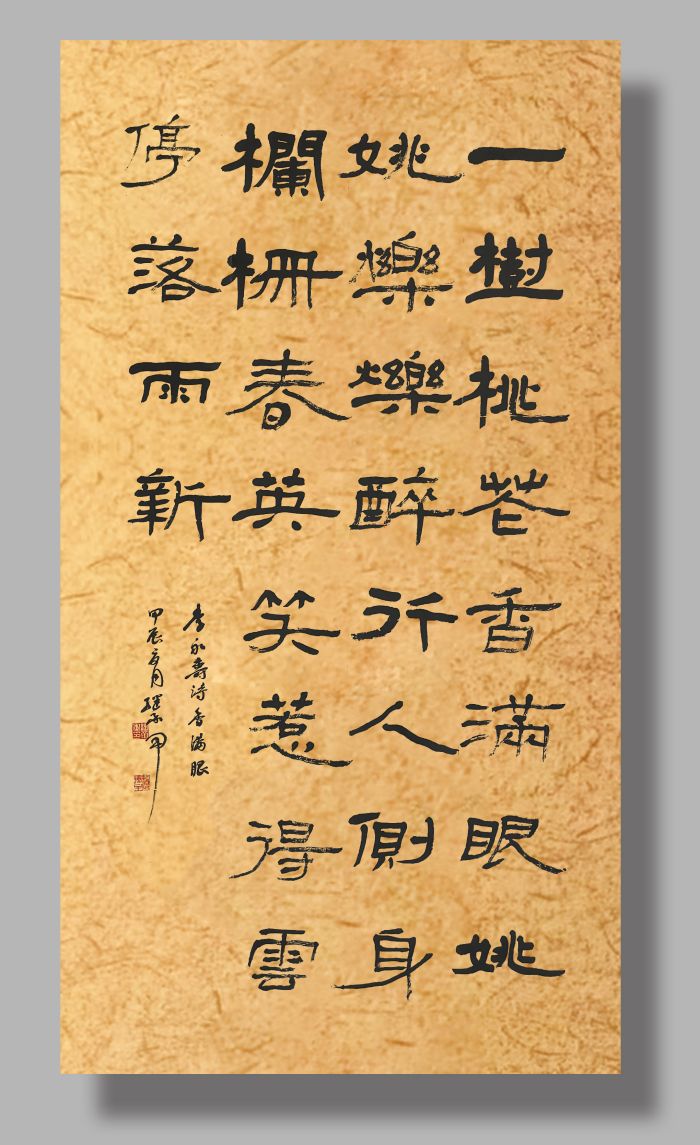 一樹桃花香滿眼姚
姚爍爍醉行人側身
欄柵春英笑惹得雲
停落雨新
李永壽詩香滿眼
甲辰月